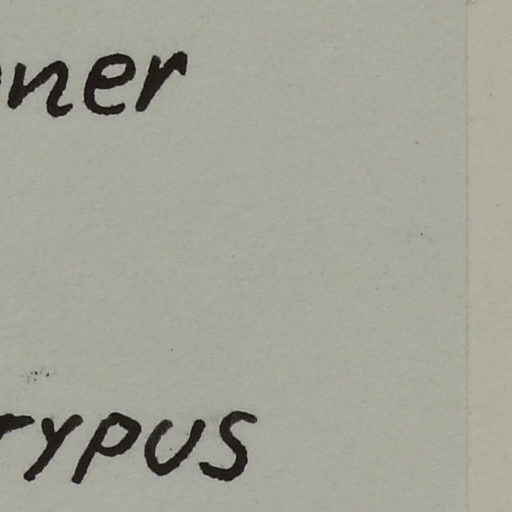 ner
rypus